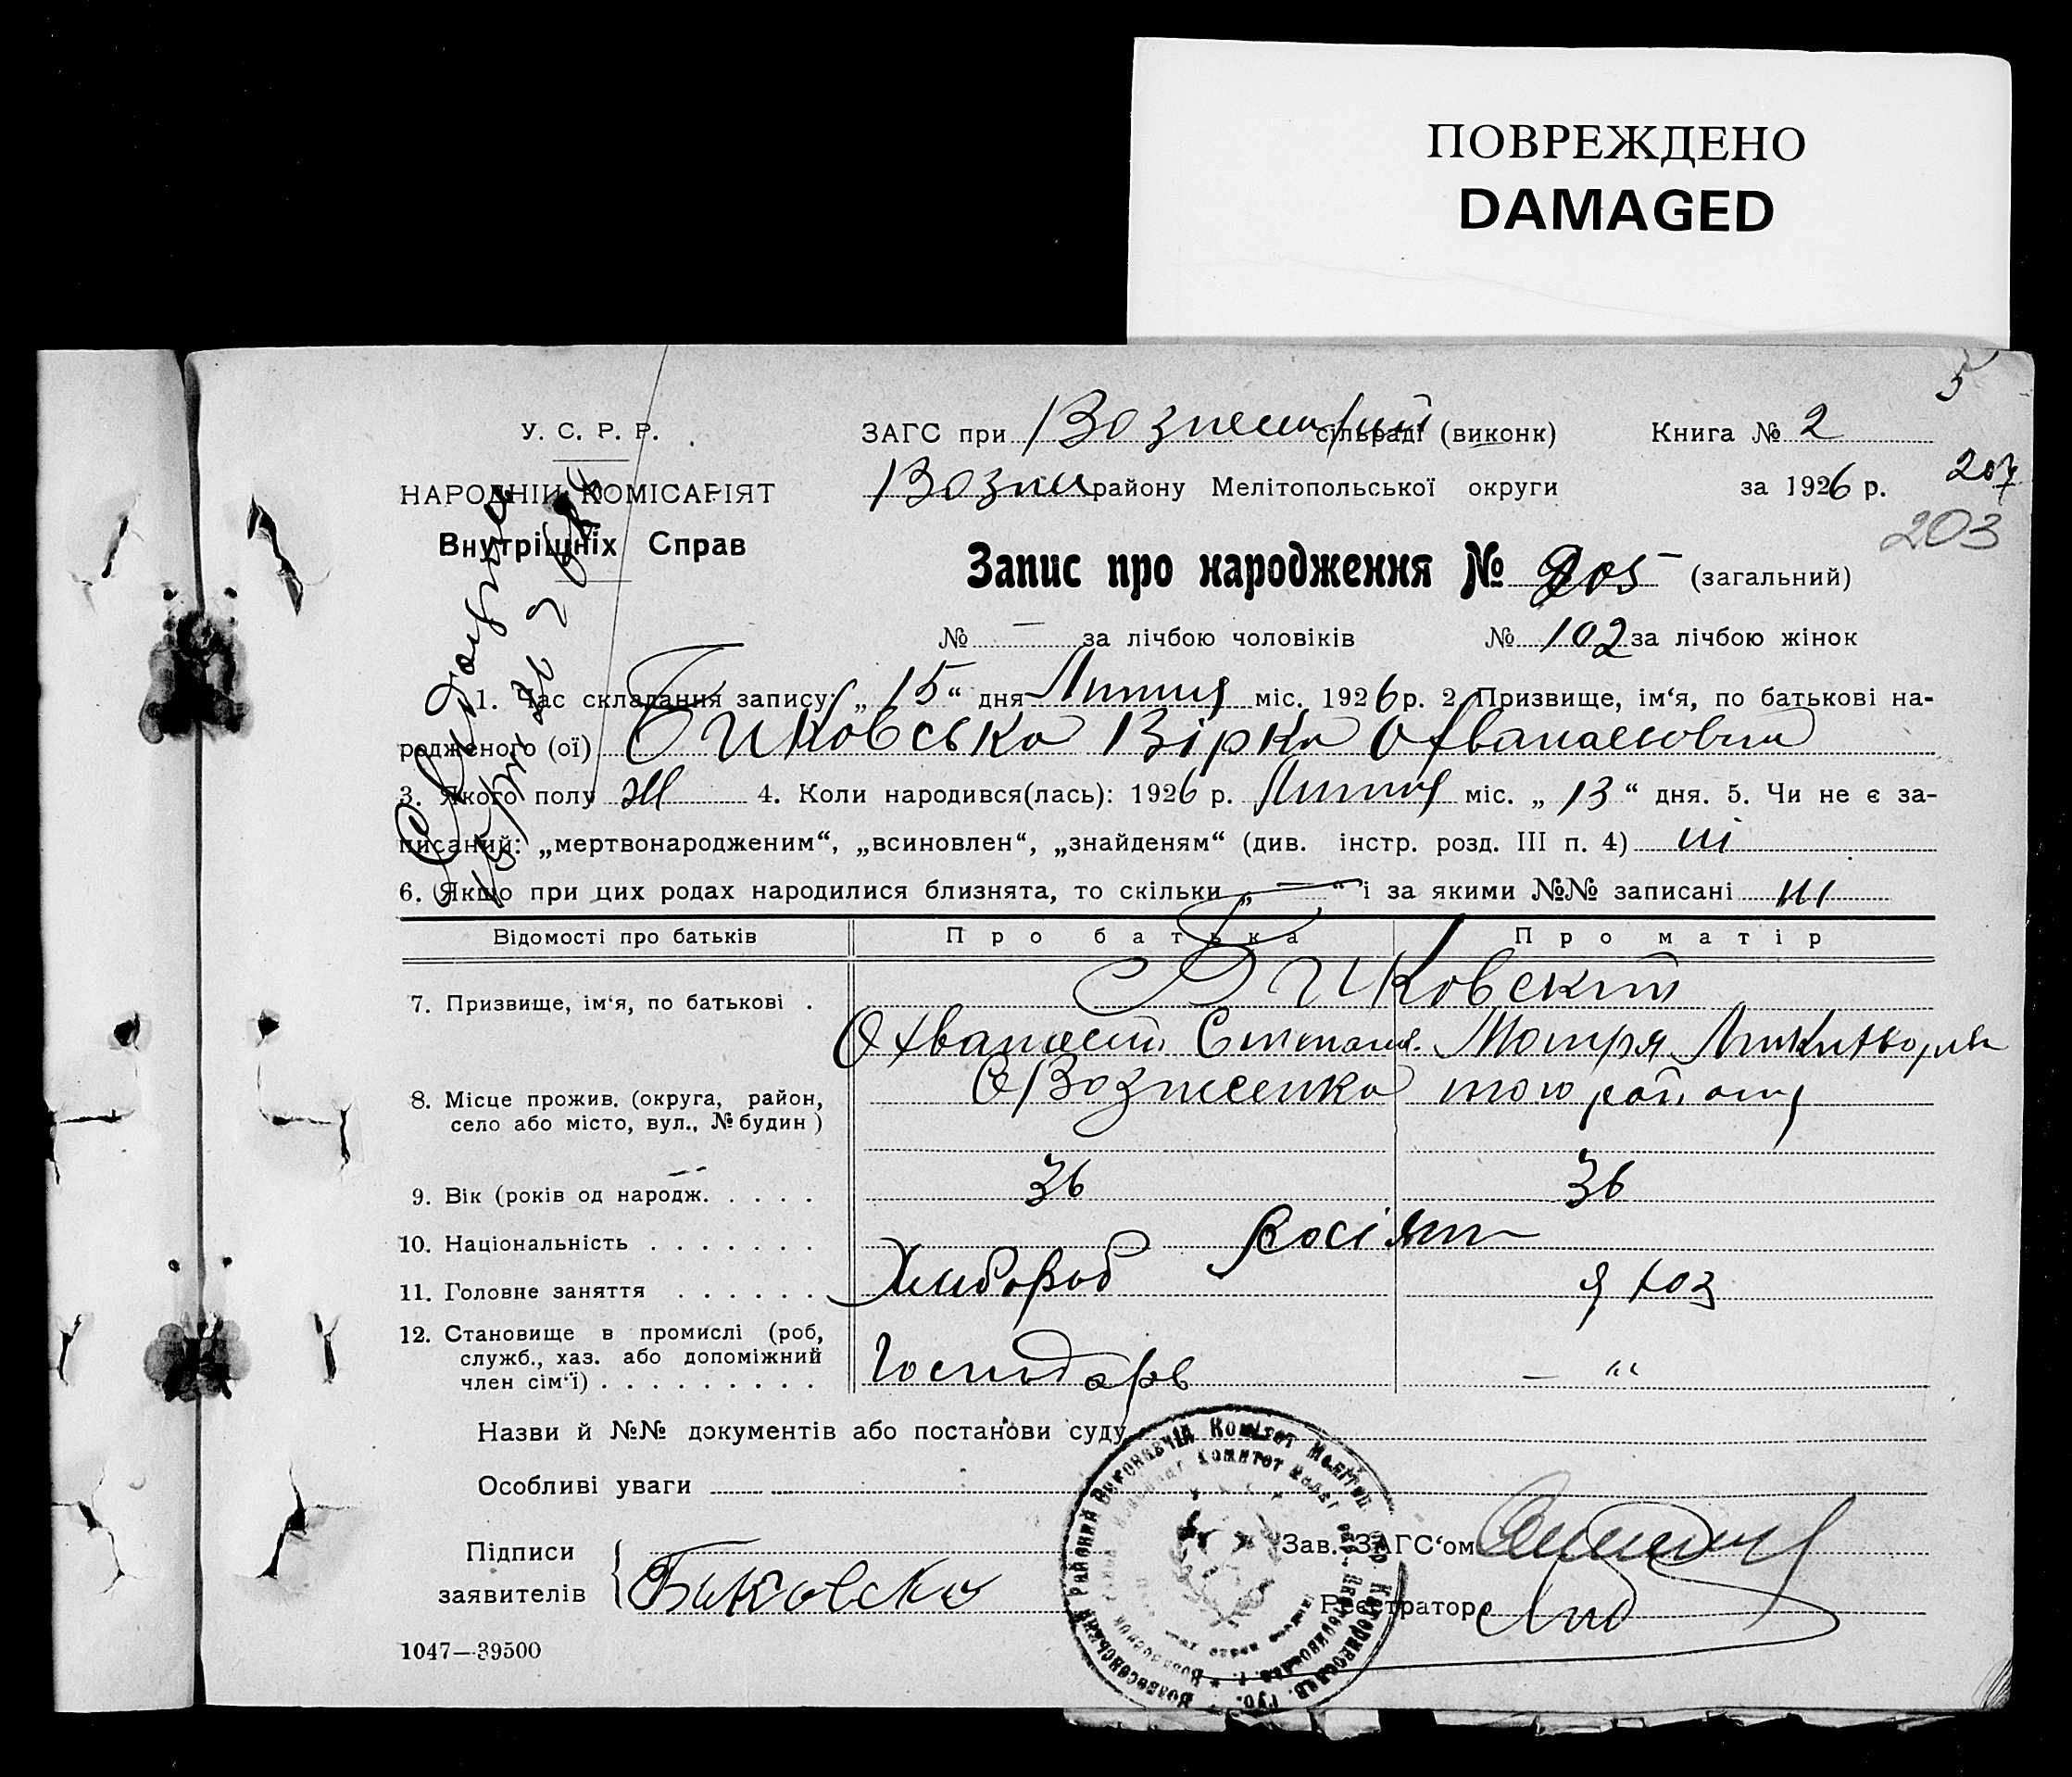 ПОВРЕЖДЕНО
DAMAGED
5
У. С. Р. Р.
НАРОДНІЙ КОМІСАРІЯТ
Внутрішніх Справ
ЗАГС при сільраді (виконк) Книга № 2
Возне району Мелітопольської округи за 1926 р.
207
203
Запис про народження № 205 (загальний)
№ — за лічбою чоловіків № 102 за лічбою жінок
1. Час складання запису: „ 15 “ дня Липня міс. 1926 р. 2. Призвище, ім‘я, по батькові на-
родженого (ої) Биковська Вірка
3. Якого полу Ж 4. Коли народився(лась): 1926 р. Липня міс. „ 13 “ дня. 5. Чи не є за-
писаний: „мертвонародженим“, „всиновлен“, „знайденям“ (див. інстр. розд. III п. 4) ні
6. Якщо при цих родах народилися близнята, то скільки „ — “ і за якими №№ записані ні
Відомості про батьків Про батька Про матір
7. Призвище, ім‘я, по батькові . Биковський
Охванасий Степан. Мотря
8. Місце прожив. (округа, район, село або місто, вул., № будин) с Вознесенка того району
9. Вік (років од народж. . . . . 36 36
10. Національність . . . . . . . Росіян
11. Головне заняття . . . . . . Хлібороб
12. Становище в промислі (роб, служб., хаз. або допоміжний член сім‘ї) . . . . . . . . . Господарь — “
Назви й №№ документів або постанови суду
Особливі уваги
Підписи
заявителів Биковска
Зав. ЗАГС‘ом
Реєстратор
1047—39500